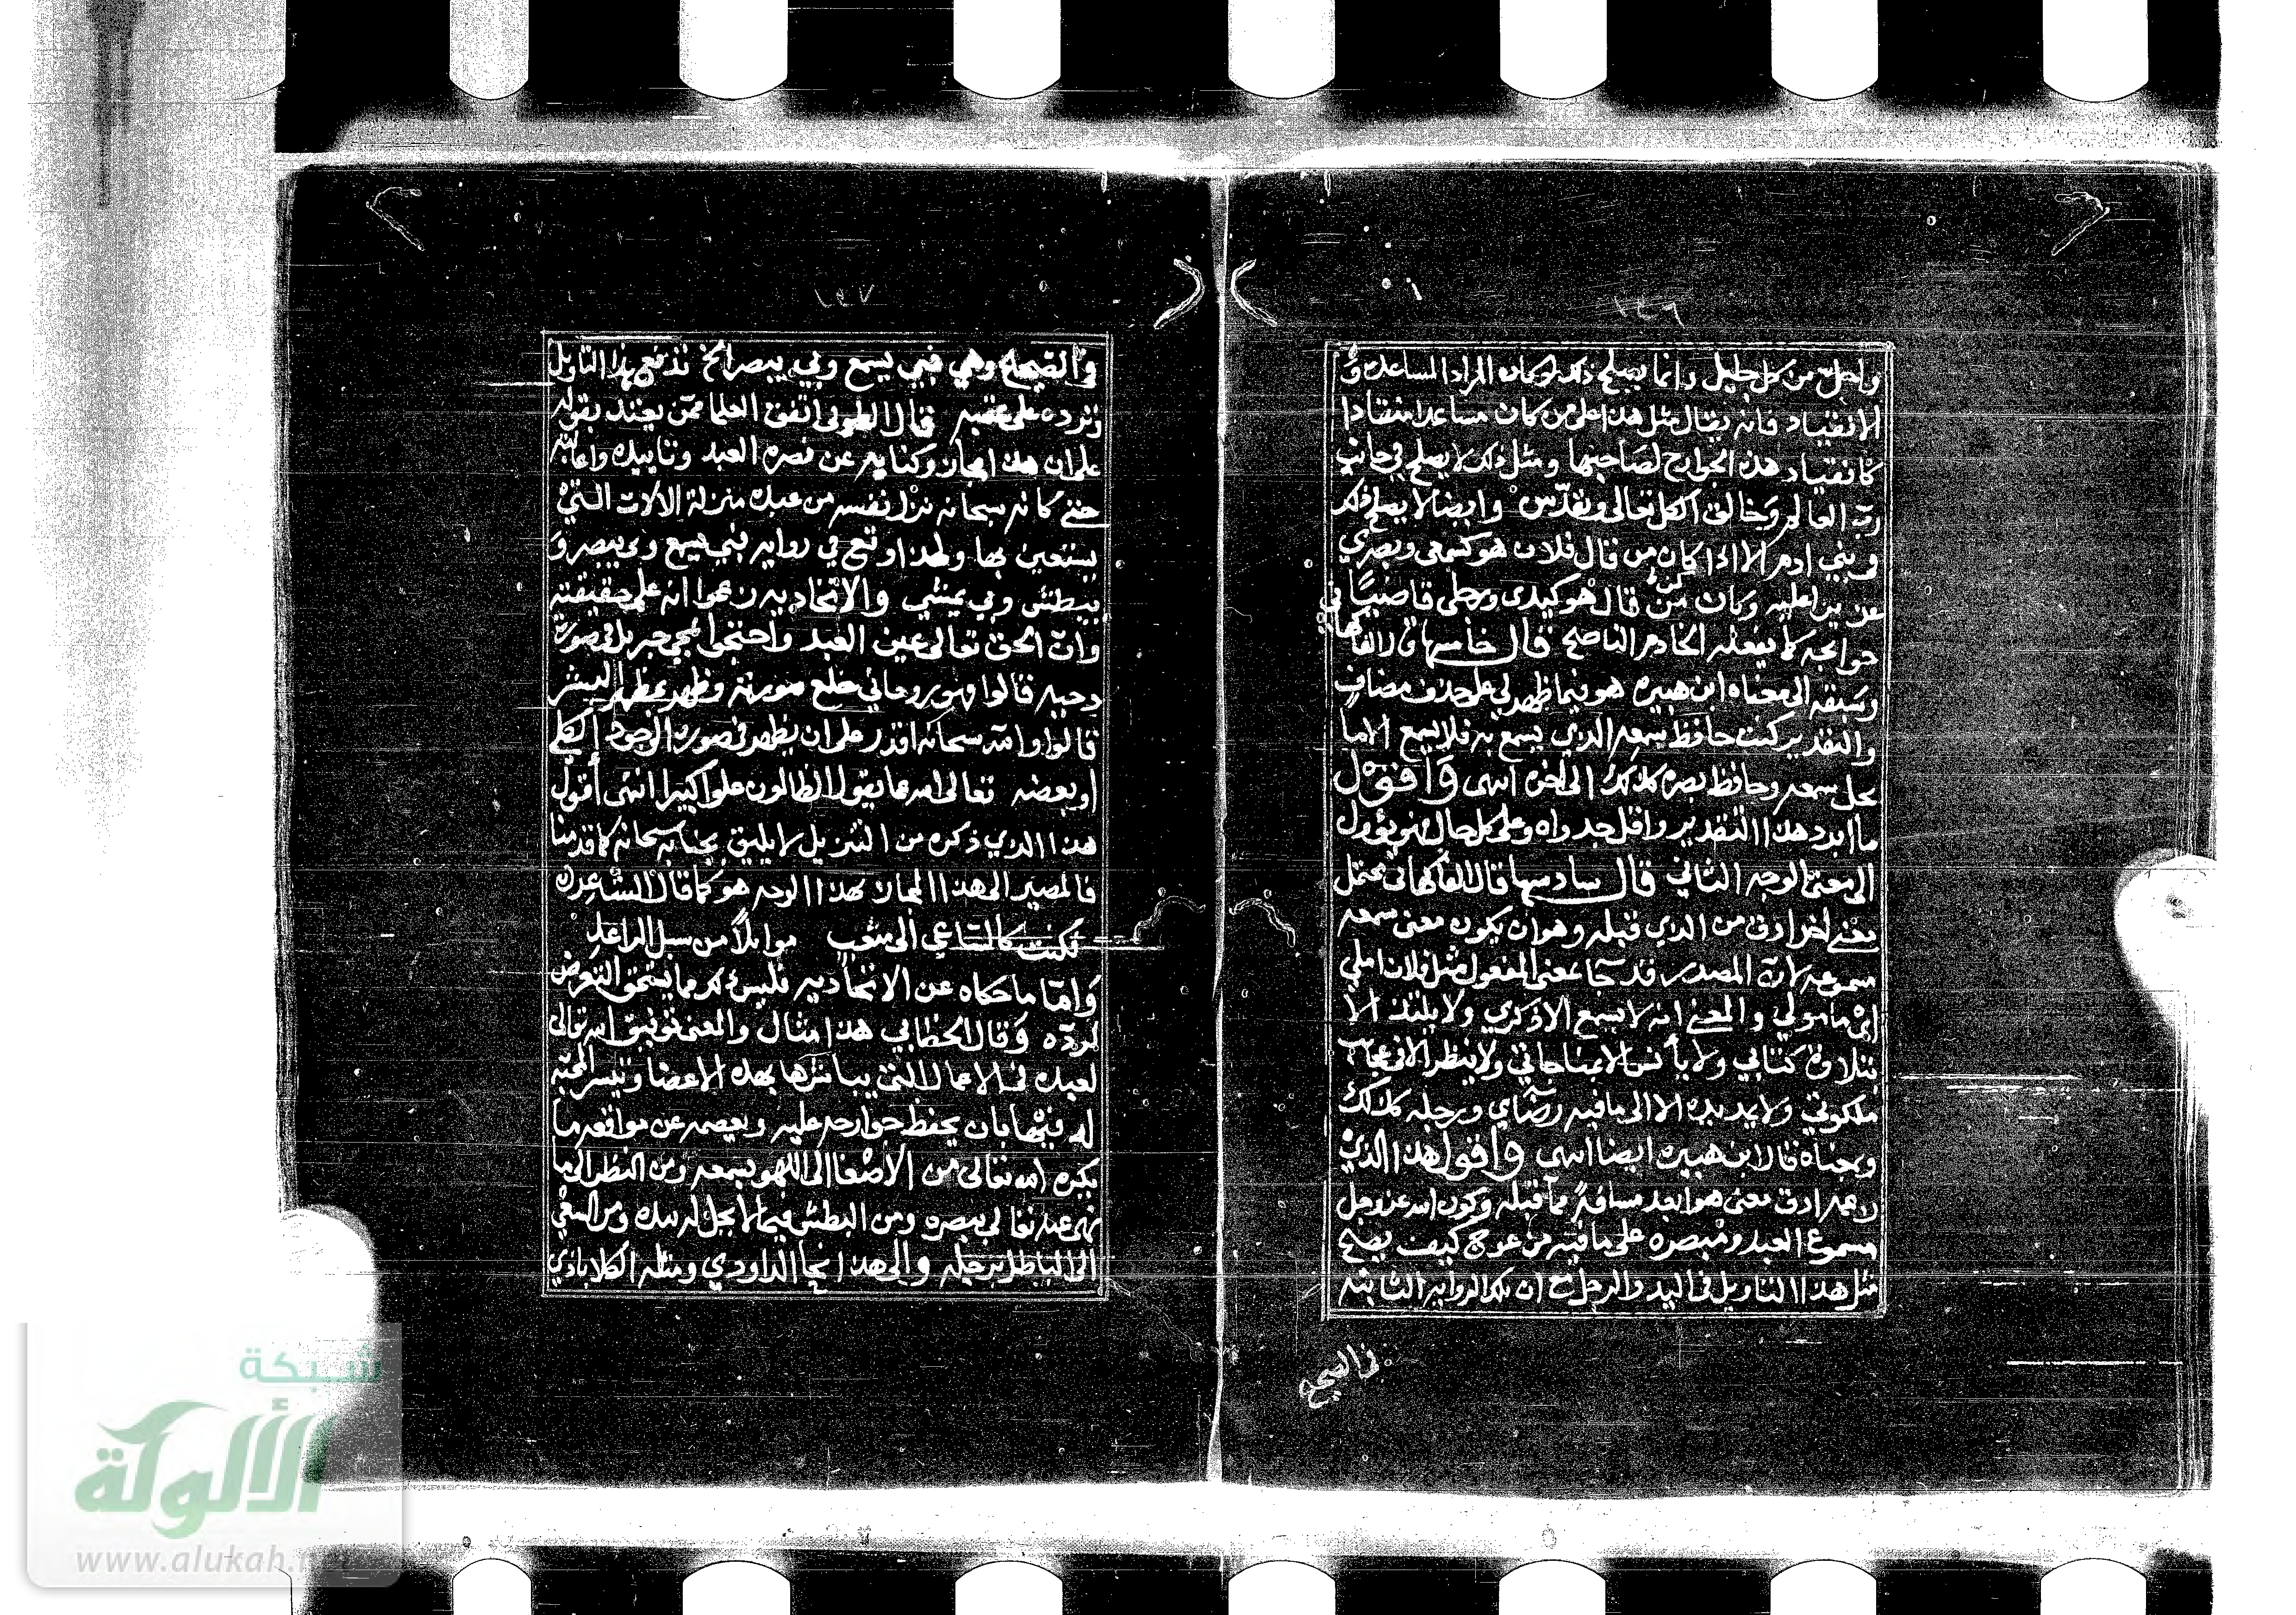 ١٤٦
واجل من كل جليل وانما يصلح ذلك لو كان المراد المساعده و
الانقياد فانه يقال مثل هذا على من كان مساعدا منقادا
كانقياد هذه الجوارح لصاحبها ومثل ذلك لا يصلح في جانب
رب العالم وخالق الكل تعالى وتقدس وايضا لا يصلح ذلك
في بني ادم الا اذا كان من قال فلان هو كسمعي وبصري
حوايجه كما يفعله الخادم الناصح قال خامسها قال الفاكهاني
وسبقه الى معناه ابن هبيره هو فيما ظهر لي على حذف مضاف
والتقدير كنت حافظ سمعه الذي يسمع به فلا يسمع الا ما
يحل سمعه وحافظ بصره كذلك الى اخره انتهى واقول
ما ابرد هذا التقدير واقل جدواه وعلى كل حال فهو يؤول
الى معنى الوجه الثاني قال سادسها قال الفاكهاني يحتمل
معنى اخر ادق من الذي قبله وهو ان يكون معنى سمعه
مسموعه لان المصدر قد جا بمعنى المفعول مثل فلان املي
اي مامولي والمعنى انه لا يسمع الا ذكري ولا يلتذ الا
بتلاوة كتابي ولا يأنس الا بمناجاتي ولا ينظر الا في عجائب
ملكوتي ولا يمد يده الا الى ما فيه رضاي ورجله كذلك
وبمعناه قال ابن هبيره ايضا انتهى واقول هذا الذي
زعمه ادق معنى هو ابعد مسافة مما قبله وكون الله عز وجل
مسموع العبد ومبصره على ما فيه من عوج كيف يصلح
مثل هذا التاويل في اليد والرجل مع ان تلك الرواية الثابته
في الصحيح
١٤٧
في الصحيح وهي فبي يسمع وبي يبصر الخ تدفع هذا التاويل
وترده على عقبه قال الطوفي اتفق العلما ممن يعتد بقوله
على ان هذا مجاز وكنايه عن نصره العبد وتاييده واعانته
حتى كانه سبحانه نزل نفسه من عبده منزلة الالات التي
يستعين بها ولهذا وقع في روايه فبي يسمع وبي يبصر و
بي يبطش وبي يمشي والاتحاديه زعموا انه على حقيقته
وان الحق تعالى عين العبد واحتجوا بمجي جبريل في صورة
دحيه قالوا فهو روحاني خلع صورته وظهر بمظهر البشر
قالوا والله سبحانه اقدر على ان يظهر في صورة الوجود الكلي
او بعضه تعالى الله عما يقول الظالمون علوا كبيرا انتهى اقول
هذا الذي ذكره من التنزيل لا يليق بجنابه سبحانه كما قدمنا
فالمصير الى هذا المجاز بهذا الوجه هو كما قال الشاعر
فكنت كالساعي الى مثعب موايلا من سبل الراعد
واما ما حكاه عن الاتحاديه فليس ذلك مما يستحق التعرض
لرده وقال الخطابي هذا مثال والمعنى توفيق الله تعالى
لعبده في الاعمال التي يباشرها بهذه الاعضا وتيسر المحبة
له فيها بان يحفظ جوارحه عليه ويعصمه عن مواقعه ما
يكره الله تعالى من الاصغا الى اللهو بسمعه ومن النظر الى ما
نهى عنه تعالى ببصره ومن البطش فيما لا يحل له بيده ومن السعي
الى الباطل برجله والى هذا نحا الداودي ومثله الكلاباذي
شبكة
الألوكة
www.alukah.net